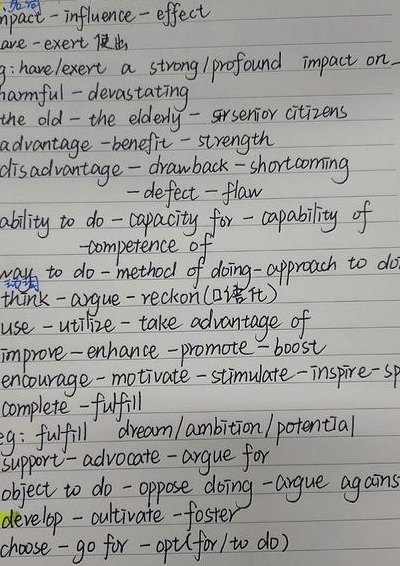 名词
mpact - influence - effect
ave - exert 使出
g: have/exert a strong/profound impact on
harmful - devastating
the old - the elderly - senior citizens
advantage - benefit - strength
disadvantage - drawback - shortcoming
- defect - flaw
ability to do - capacity for - capability of
- competence of
way to do - method of doing - approach to doi
动词
think - argue - reckon (口语化)
use - utilize - take advantage of
improve - enhance - promote - boost
encourage - motivate - stimulate - inspire - sp
complete - fulfill
eg: fulfill dream/ambition/potential
support - advocate - argue for
object to do - oppose doing - argue agains
develop - cultivate - foster
choose - go for - opt (for/to do)